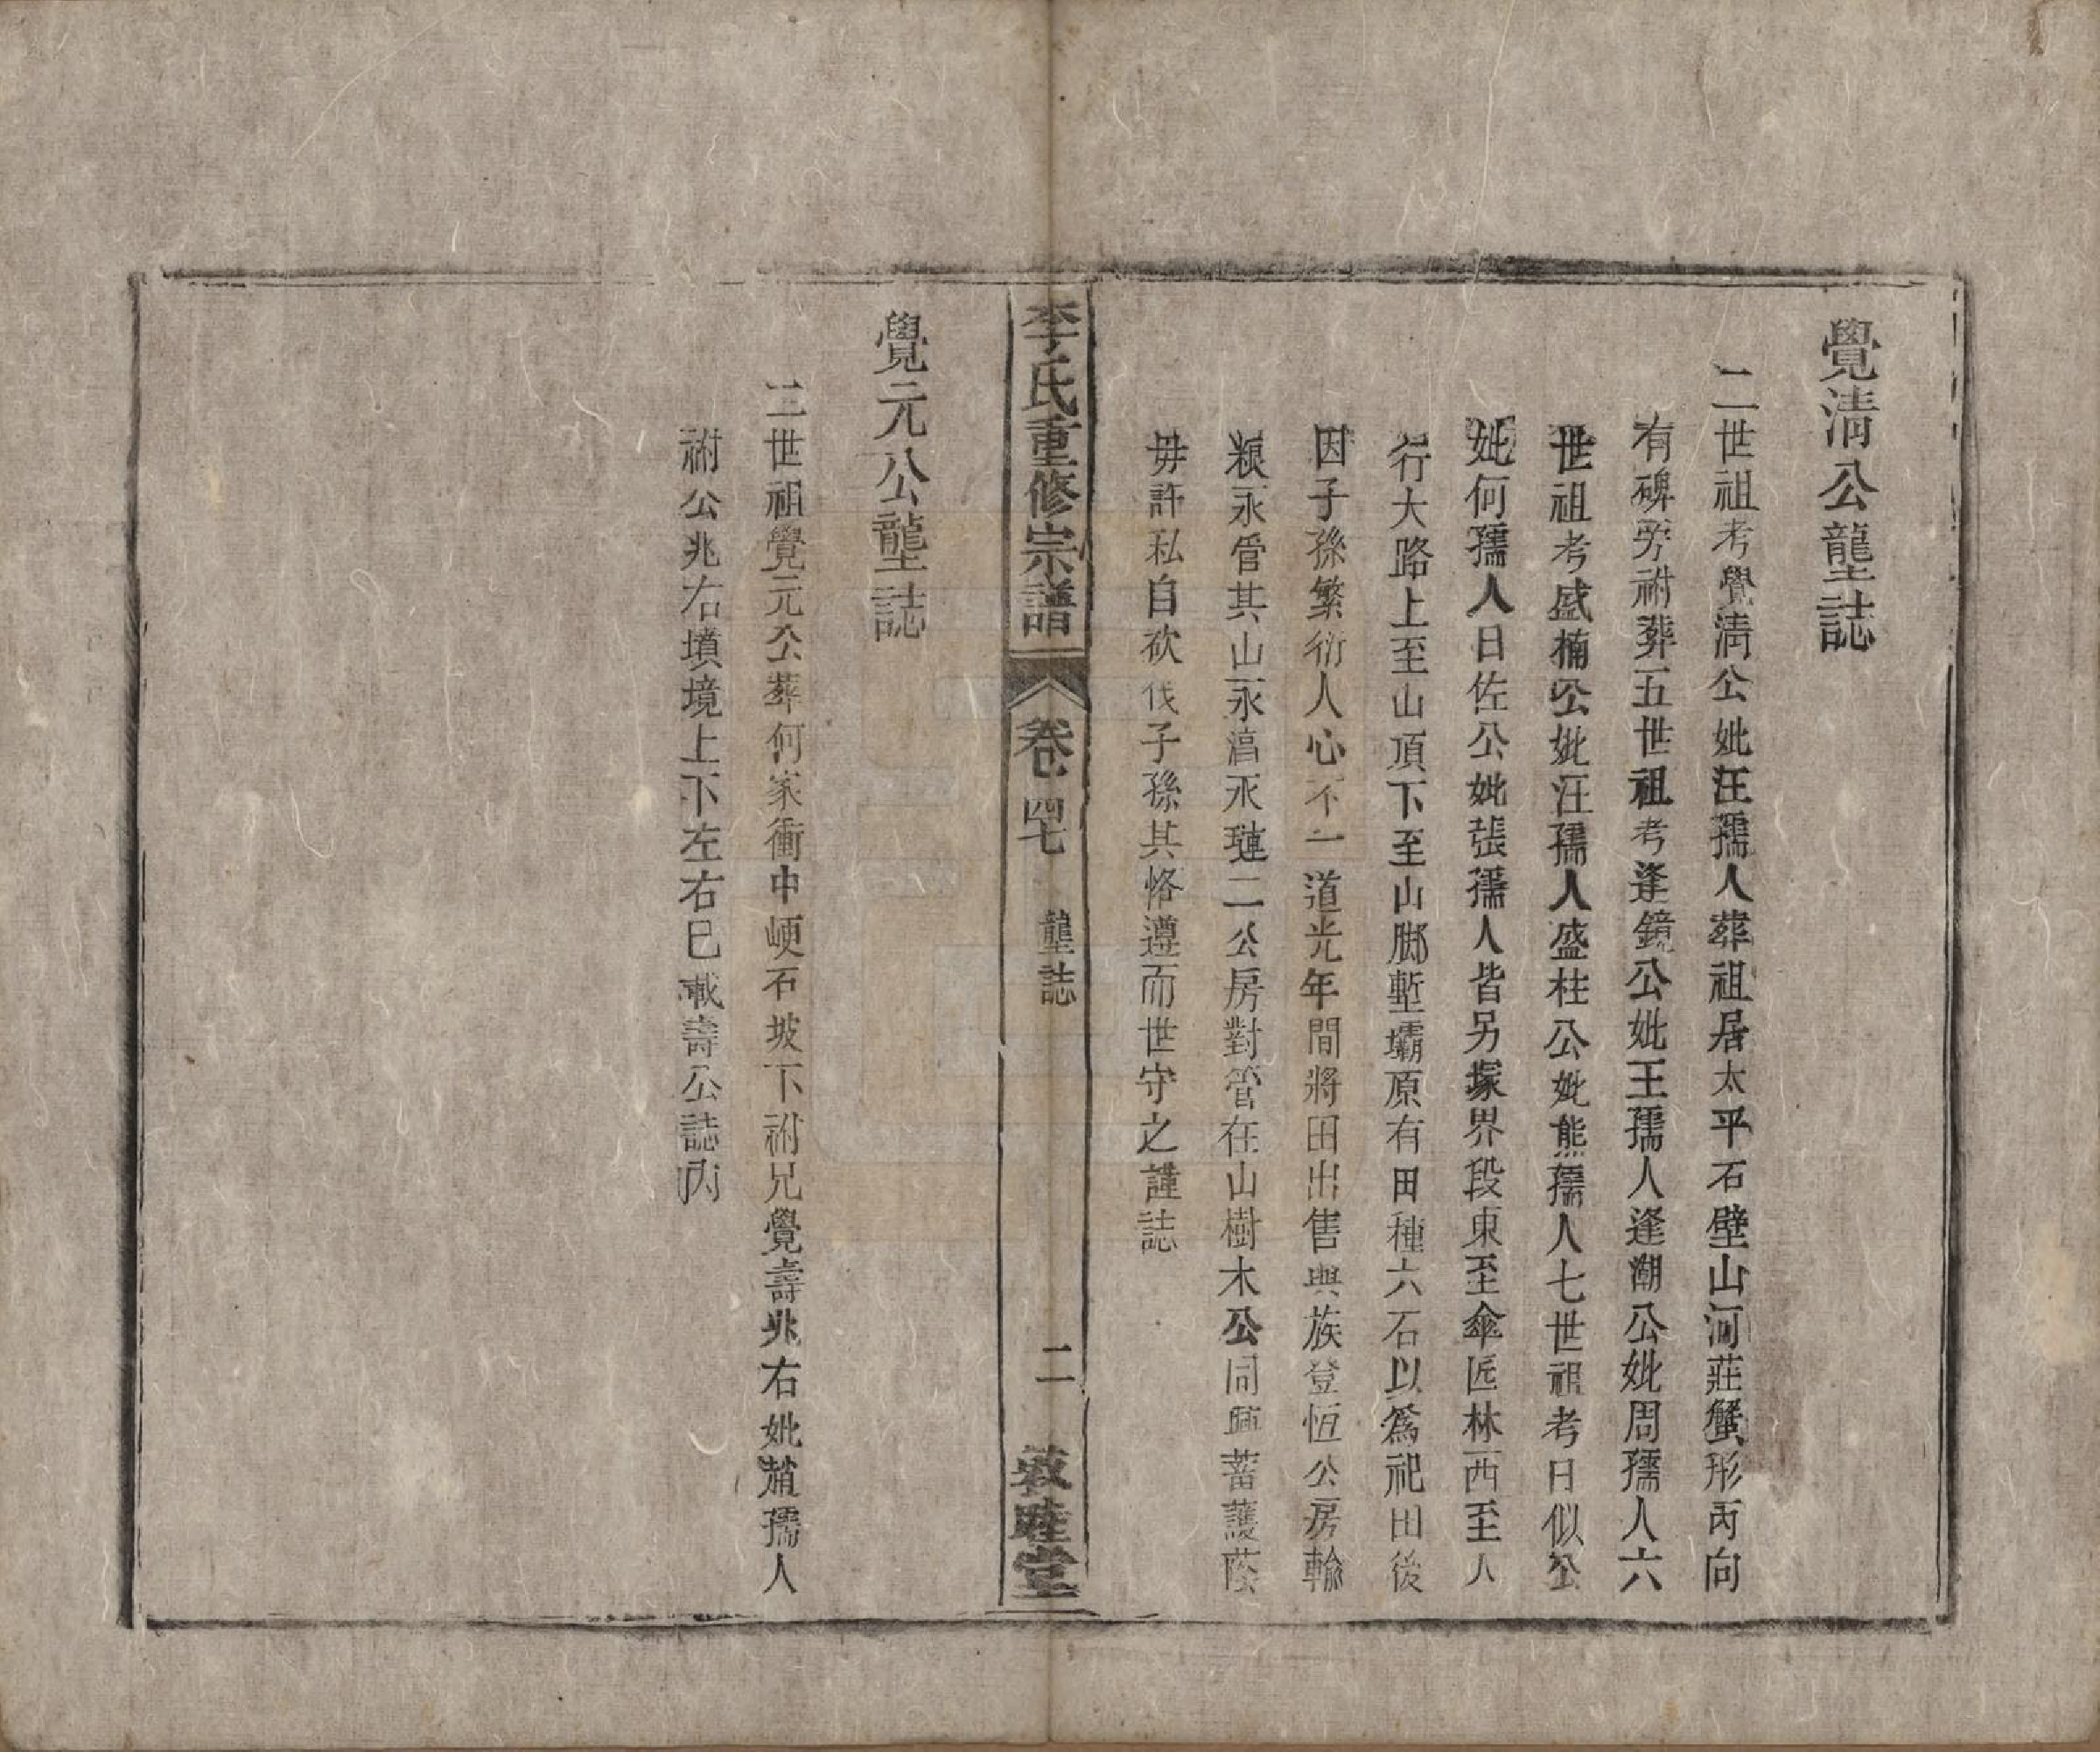 覺清公壟誌
二世祖考覺淸公妣汪孺人葬祖居太平石壁山河莊蟹形丙向
有碑旁祔葬五世祖考逢鏡公妣王孺人逢潮公妣周孺人六
世祖考盛楠公妣汪孺人盛柱公妣熊孺人七世祖考日似公
妣何孺人日佐公妣張孺人皆另塚界段東至傘匠林西至人
行大路上至山頂下至山脚塹壩原有田種六石以爲祀田後
因子孫繁衍人心不一道光年間將田出售與族登恆公房輸
粮永管其山永濇永璉二公房對管在山樹木公同興蓄護蔭
毋許私自砍伐子孫其恪遵而世守之謹誌
李氏重修宗譜 卷四七 壟誌 二 敦睦堂
覺元公壟誌
二世祖覺元公葬何家衝中峺石坡下祔兄覺壽兆右妣趙孺人
祔公兆右墳境上下左右已載壽公誌內